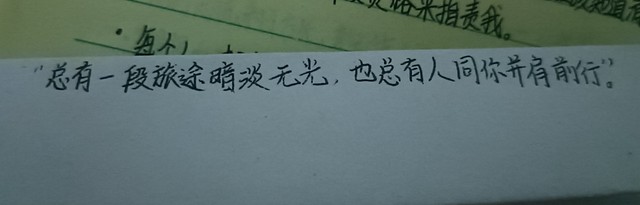 来指责我。
·每个人
“总有一段旅途暗淡无光,也总有人同你并肩前行”。